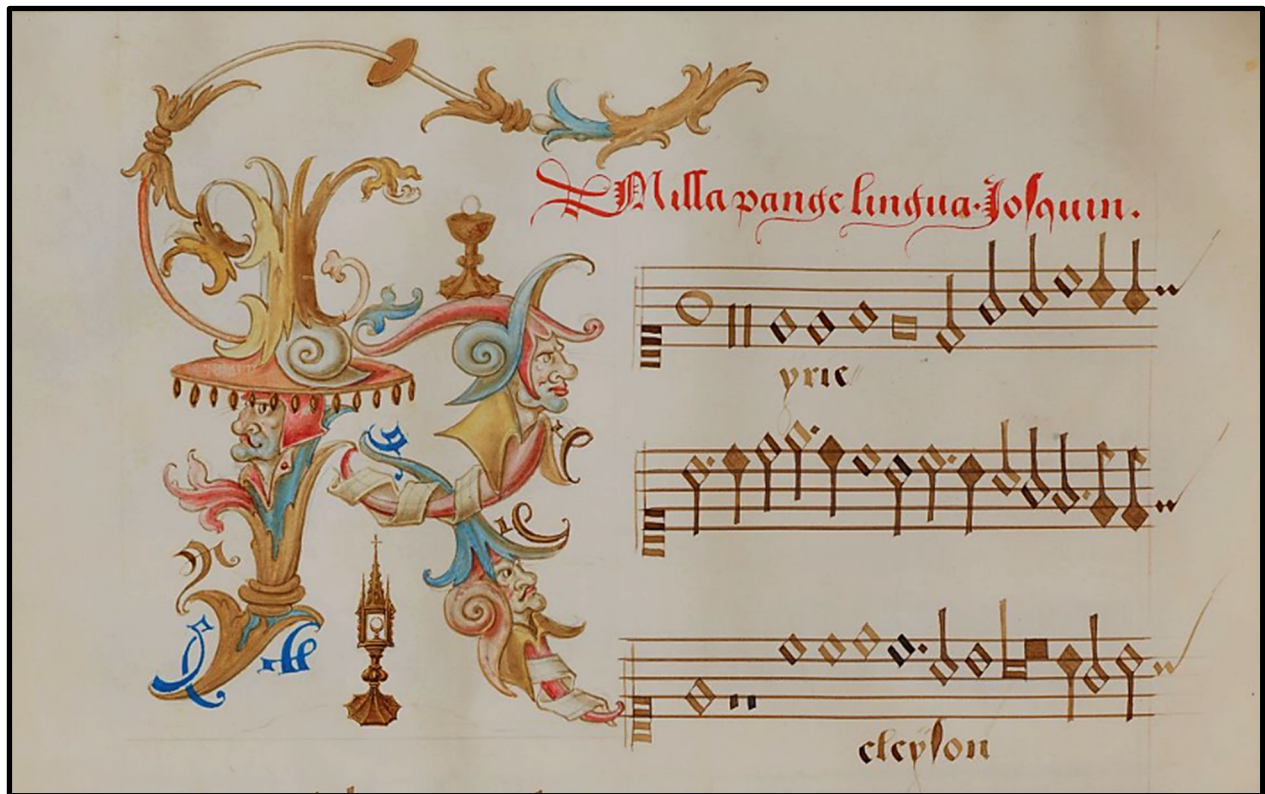 Missa pange lingua. Josquin.
K
yrie
eleyson